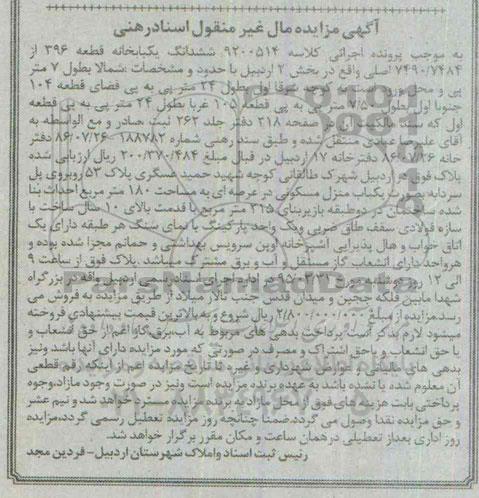 آگهی مزایده مال غیر منقول اسناد رهنی
به موجب پرونده اجرائی کلاسه ۹۲۰۰۵۱۴ ششدانگ یکبابخانه قطعه ۳۹۶ از
۷۴۹۰/۷۴۸۴ اصلی واقع در بخش ۲ اردبیل با حدود و مشخصات :شمالا بطول ۷ متر
پی و محل ورود است به کوچه شرقا اول بطول ۲۴ متر پی به پی فضای قطعه ۱۰۴
جنوبا اول بطول ۷/۵۰ متر پی به پی قطعه ۱۰۵ غربا بطول ۲۴ متر پی به پی قطعه
اول که سند مالکیت آن در صفحه ۲۱۸ دفتر جلد ۲۶۲ ثبت صادر و مع الواسطه به
آقای علیرضا عبادی منتقل شده و طبق سند رهنی شماره ۱۸۸۷۸۲ - ۸۶/۰۷/۲۶ دفتر
خانه ۸۶/۰۷/۲۶ دفترخانه ۱۷ اردبیل در قبال مبلغ ۲۰۰/۳۷۰/۴۸۴ ریال ارزیابی شده
پلاک فوق در اردبیل شهرک طالقانی کوچه شهید حمید عسگری پلاک ۵۳ روبروی پل
سردابه بصورت یکباب منزل مسکونی در عرصه ای به مساحت ۱۸۰ متر مربع احداث بنا
شده ساختمان در دو طبقه بازیربنای ۳۱۵ متر مربع با قدمت بالای ۱۰ سال ساخت با
سازه فولادی سقف طاق ضربی ویک واحد پارکینگ با نمای سنگ هر طبقه دارای یک
اتاق خواب و هال پذیرایی آشپزخانه اوپن سرویس بهداشتی و حمام مجزا شده بوده و
هرواحد دارای انشعاب گاز مستقل و آب و برق مشترک میباشد. پلاک فوق از ساعت ۹
الی ۱۲ روز دوشنبه مورخ در اداره اجرای اسناد رسمی اردبیل واقع در بزرگراه
شهدا مابین فلکه ججین و میدان قدس جنب تالار میلاد از طریق مزایده به فروش می
رسد.مزایده از مبلغ ۲/۸۰۰/۰۰۰/۰۰۰ ریال شروع و به بالاترین قیمت پیشنهادی فروخته
میشود لازم بذکر است پرداخت بدهی های مربوط به آب،برق،گاز اعم از حق انشعاب و
یا حق انشعاب و یاحق اشتراک و مصرف در صورتی که مورد مزایده دارای آنها باشد ونیز
بدهی های مالیاتی و عوارض شهرداری و غیره تا تاریخ مزایده اعم از اینکه رقم قطعی
آن معلوم شده یا نشده باشد به عهده برنده مزایده است ونیز در صورت وجود مازاد،وجوه
پرداختی بابت هزینه های فوق از محل مازاد به برنده مزایده مسترد خواهد شد و نیم عشر
و حق مزایده نقدا وصول می گردد.ضمنا چنانچه روز مزایده تعطیل رسمی گردد،مزایده
روز اداری بعداز تعطیلی در همان ساعت و مکان مقرر برگزار خواهد شد.
رئیس ثبت اسناد واملاک شهرستان اردبیل- فردین مجد
ParsNamadData